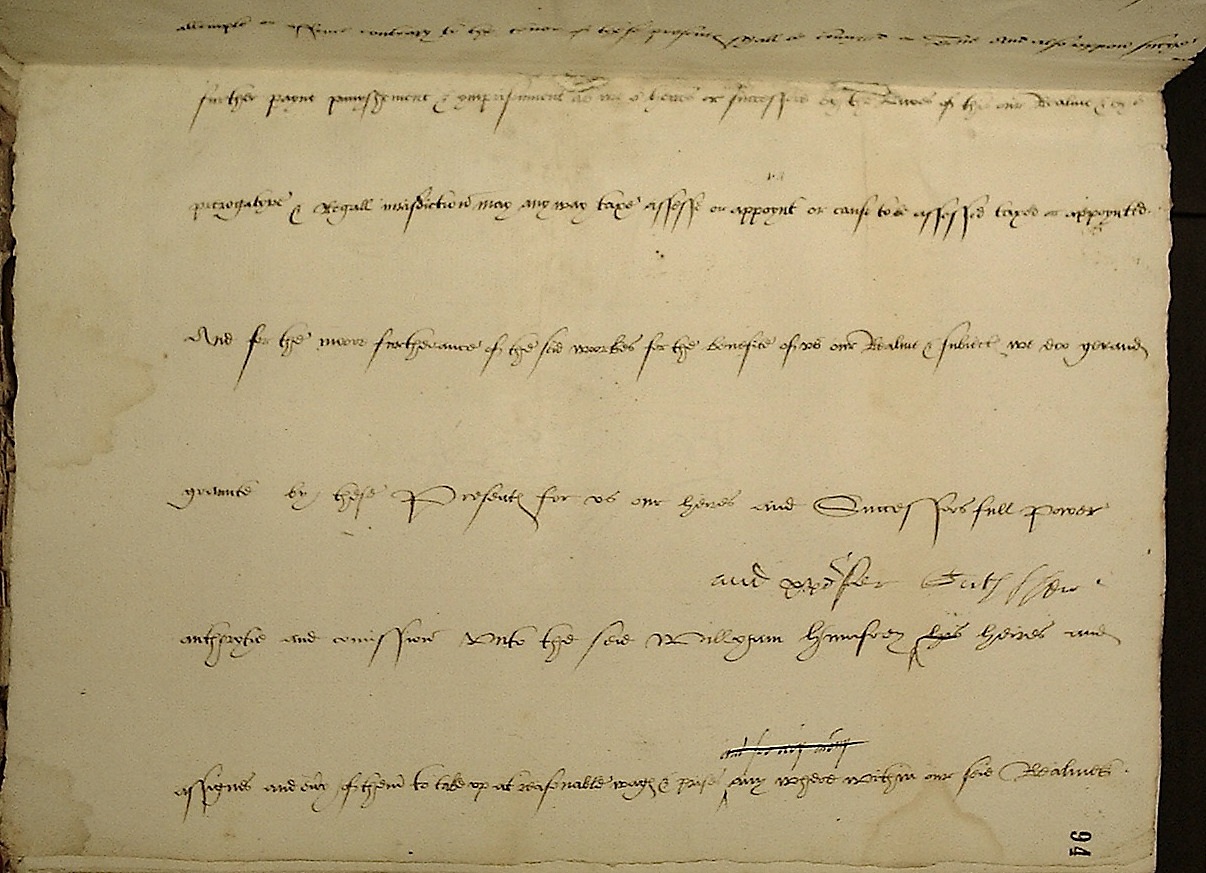 attempte or offence contrary to the tenor of these presentes shall be and also uppon
further payne punyshement & ymprisonment as we o heires or successors by the Lawes of this our Realme & by o
prerogatyve & Regall iurisdiction may any way taxe assesse or appoynt or cause to be assessed taxed or appoynted.
And for the more furtherance of the seid workes for the benefite of us our Realme & subiectes we doo geve and
graunte by these Presentes for us our heires and Successors full Power
and xpofer
authorytie and comission Unto the seid Willyam Humfrey his heires and
assignes and eny of them to take up at reasonable wages & prises any where within our seid Realmes.
94